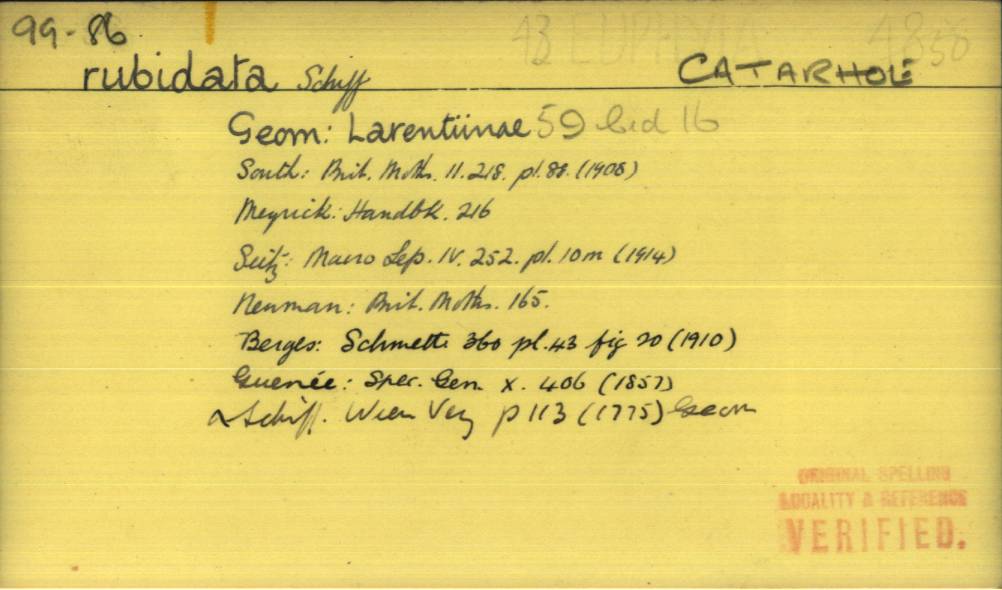 99-86 43 EUPHYIA 4838
rubidata Schiff CATARHOE
Geom: Larentiinae 59 bid 16
South: Brit. Moths. 11. 218. pl. 88. (1908)
Meyrick: Handbk. 216
Seitz: Macro Lep. IV. 252. pl. 10m (1914)
Newman: Brit. Moths. 165.
Berges: Schmett 360 pl. 43 fig 20 (1910)
Guenée: Spec. Gen. X. 406 (1857)
Schiff. Wien Verz p 113 (1775) Geom
ORIGINAL SPELLING
LOCALITY & REFERENCE
VERIFIED.